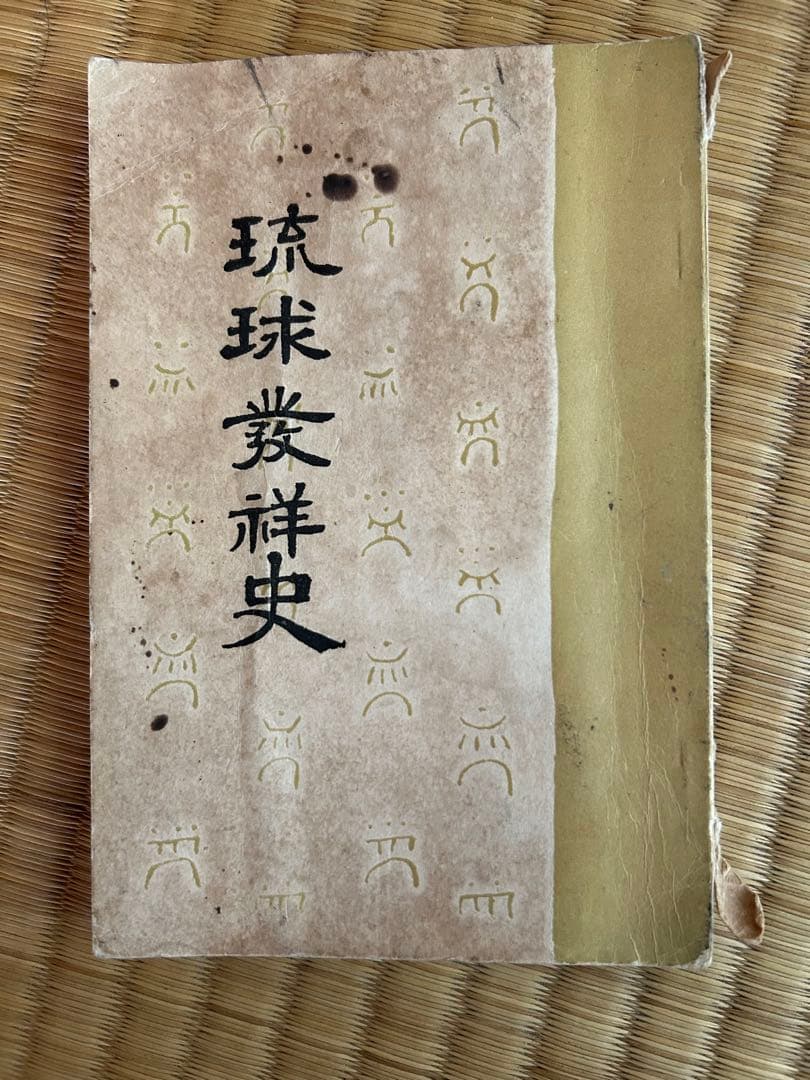 琉球發祥史